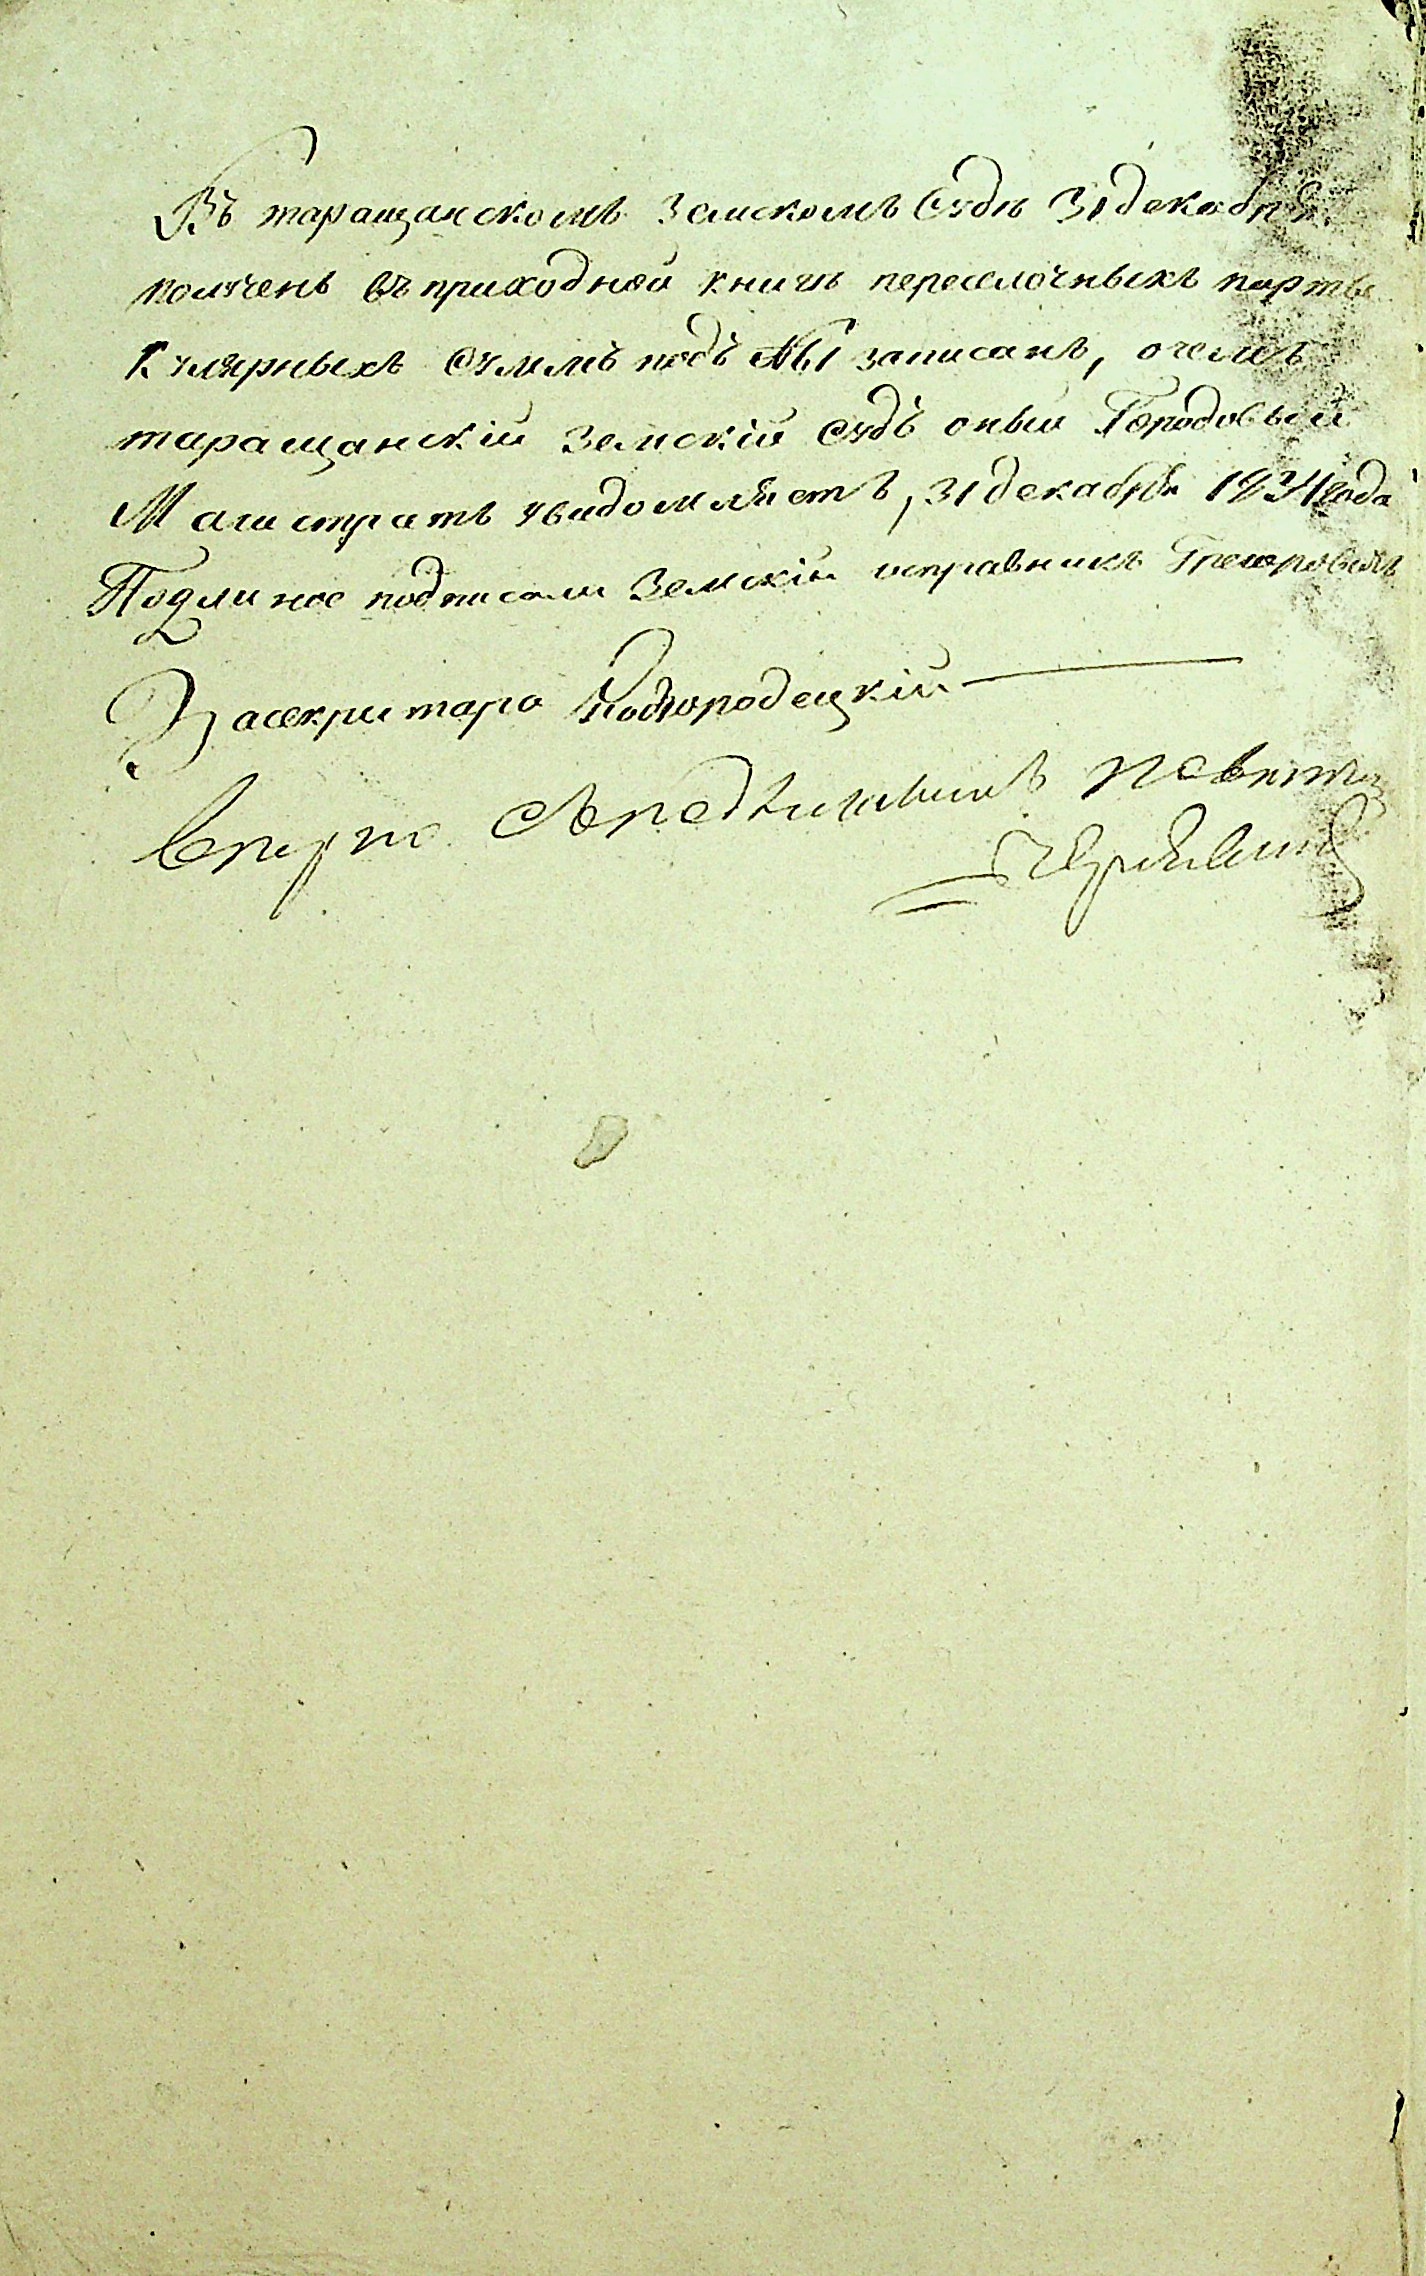 Въ таращанскомъ Земскомъ Судѣ 31 декабря
полученъ въ приходной книгѣ пересылочныхъ парты
кулярныхъ суммъ подъ № 61 записанъ, о чемъ
таращанскій Земскій Судъ оный Городовый
Магистратъ увидомляетъ, 31 декабря 1834 года
Подлиное подписали Земскій исправникъ Григоровичъ
За секритаря Подгородецкій
Верно